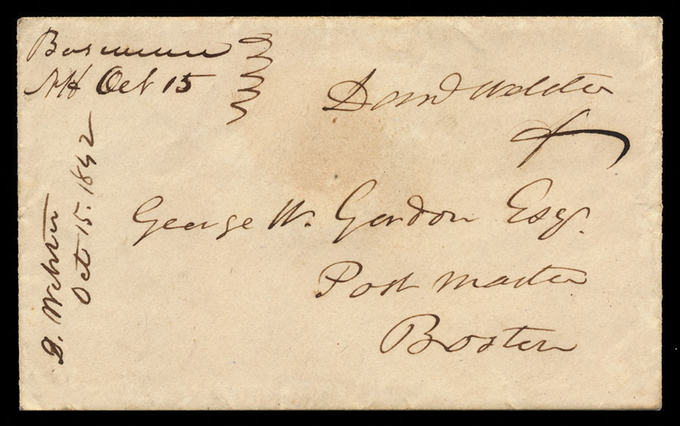 Boscawen
NH Oct 15
Danl Webster
George W. Gordon Esqr.
Post Master
Boston
D. Webster
Oct 15. 1842